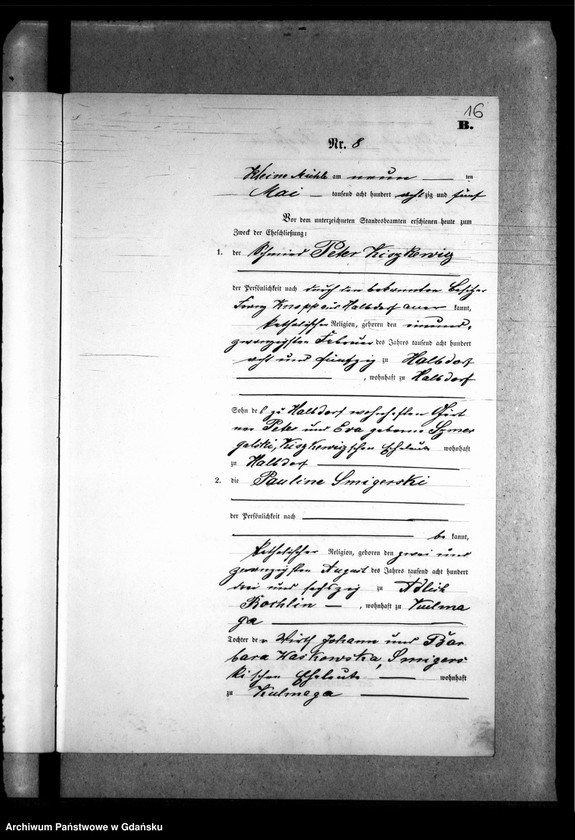 16
B.
Nr. 8
Kleine Mühle am neun ten
Mai tausend acht hundert achtzig und fünf
Vor dem unterzeichneten Standesbeamten erschienen heute zum
Zweck der Eheschließung:
1. der Schmied Peter Kiszkewig
der Persönlichkeit nach durch den bekannten Besitzer
Franz Knopp aus Halbdorf aner kannt,
katholischer Religion, geboren den
zwanzigsten Februar des Jahres tausend acht hundert
acht und fünfzig zu Halbdorf
, wohnhaft zu Halbdorf
Sohn des zu Halbdorf wohnhaften
Peter und Eva geborne
Kiszkewigschen Eheleute wohnhaft
zu Halbdorf
2. die Pauline Smigerski
der Persönlichkeit nach
be kannt,
katholischer Religion, geboren den zwei und
zwanzigsten August des Jahres tausend acht hundert
drei und sechszig zu Adlich
, wohnhaft zu Kulma
ga
Tochter der Wirth Johann und Bar
bara Kaskowska, Smigers
kischen Eheleute wohnhaft
zu Kulmaga
Archiwum Państwowe w Gdańsku